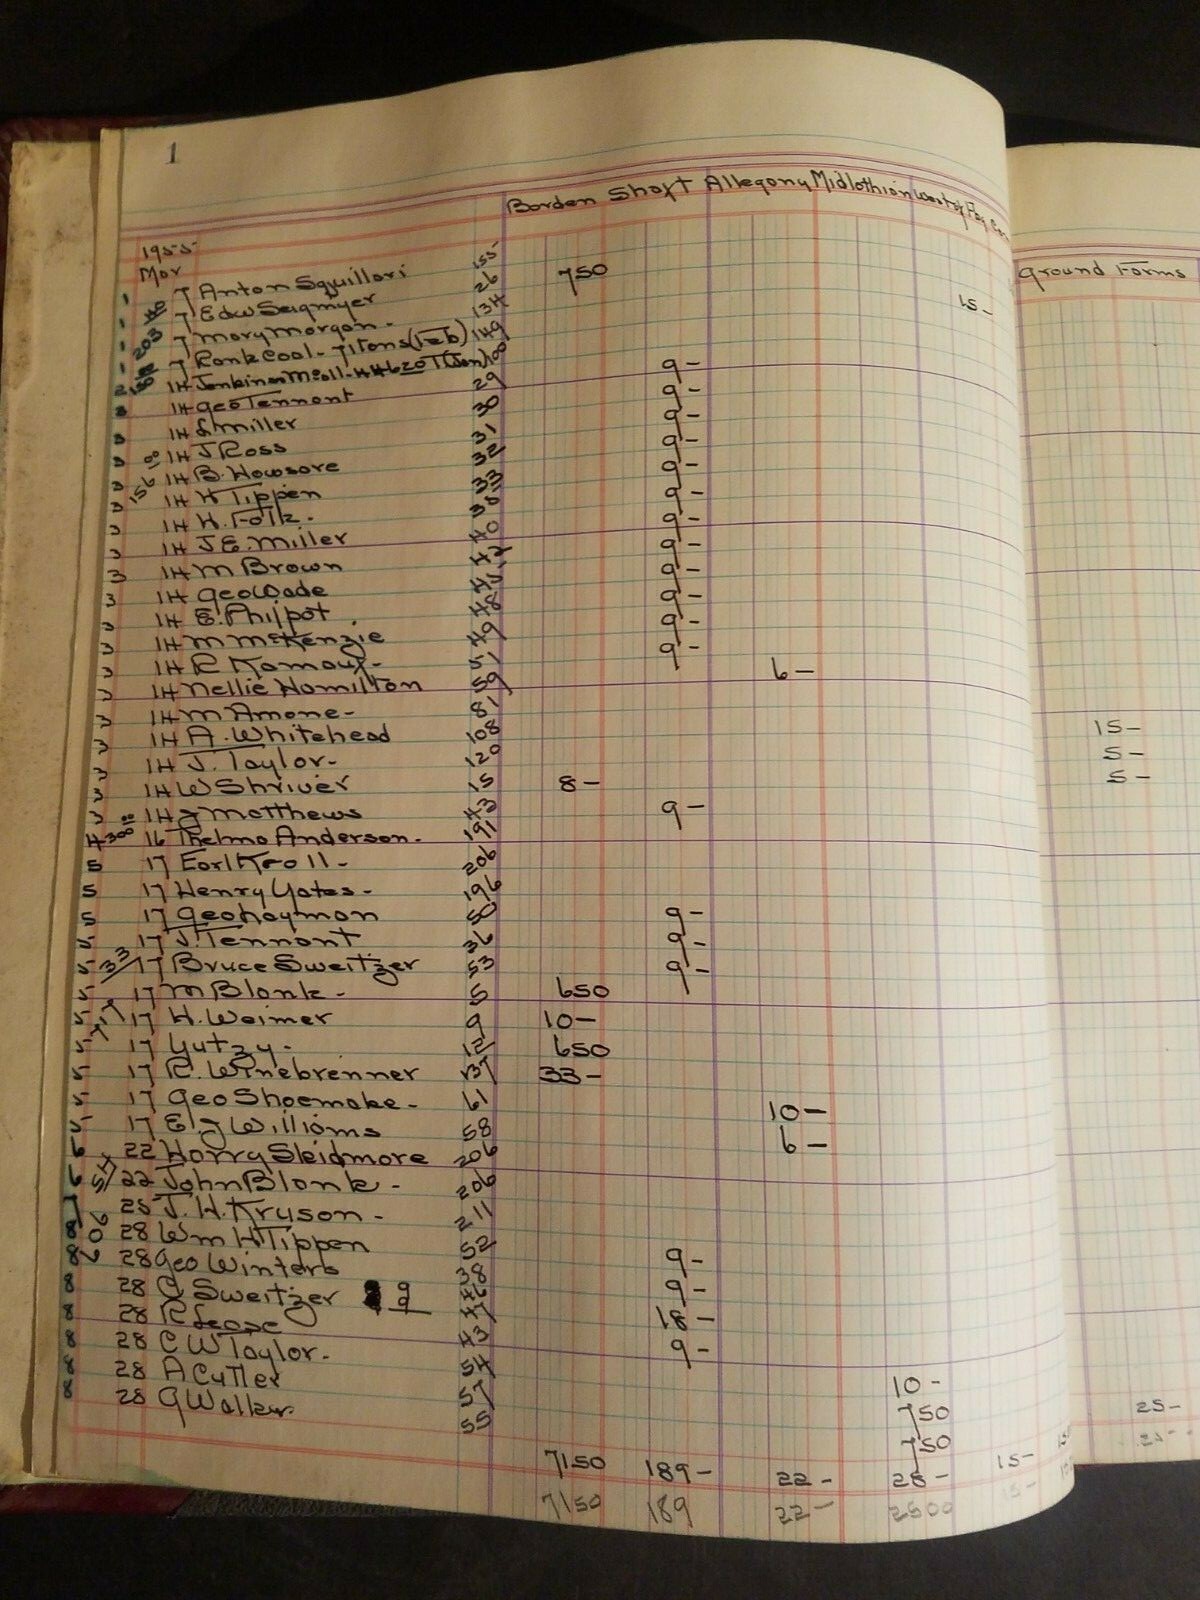 1
Borden Shaft Allegany Midlothian West of Fbg
Ground Farms
1955
Mar
1 7 Anton Squillari 155 750
1 7 Edw Seigmyer 26 15-
1 203 7 Mary Morgan- 134
1 7 Rank Coal- 71 tons (Feb) 149
2 14 Jenkins Mcall- 4620T (Jan) 100
3 14 Geo Tennant 29 9-
3 14 L Miller 30 9-
3 14 J Ross 31 9-
3 14 B. Howsare 32 9-
3 156 14 H Tippen 33 9-
3 14 H. Folk. 35 9-
3 14 J.E. Miller 40 9-
3 14 M Brown 42 9-
3 14 Geo Wade 9-
3 14 E. Philpot 48 9-
3 14 M McKenzie 49 9-
3 14 R Kamoux- 51 9-
3 14 Nellie Hamilton 59 6-
3 14 M Amone- 81
3 14 A. Whitehead 108 15-
3 14 J. Taylor- 120 5-
3 14 W Shriver 15 8- 5-
3 14 J Matthews 43 9-
4 300 16 Thelma Anderson- 191
5 17 Earl Kroll- 206
5 17 Henry Yates- 196
5 17 Geo Layman 50 9-
5 17 J. Tennant 36 9-
5 33 17 Bruce Sweitzer 53 9-
5 17 M Blank- 5 650
5 17 H. Weimer 9 10-
5 17 Yutzy- 12 650
5 17 R. Winebrenner 137 33-
5 17 Geo Shoemake- 61 10-
5 17 E J Williams 58 6-
6 22 Harry Skidmore 206
6 22 John Blank- 206
7 25 J. H. Kryson- 211
8 28 Wm H Tippen 52 9-
8 28 Geo Winters 38 9-
8 28 C Sweitzer 9 46 18-
9
8 28 R Lease 47 9-
8 28 C W Taylor- 43
8 28 A Cutler 54 10-
8 28 G Walker 57 750 25-
55 750 25-
7150 189- 22- 28- 15-
7150 189 22- 2500 15-